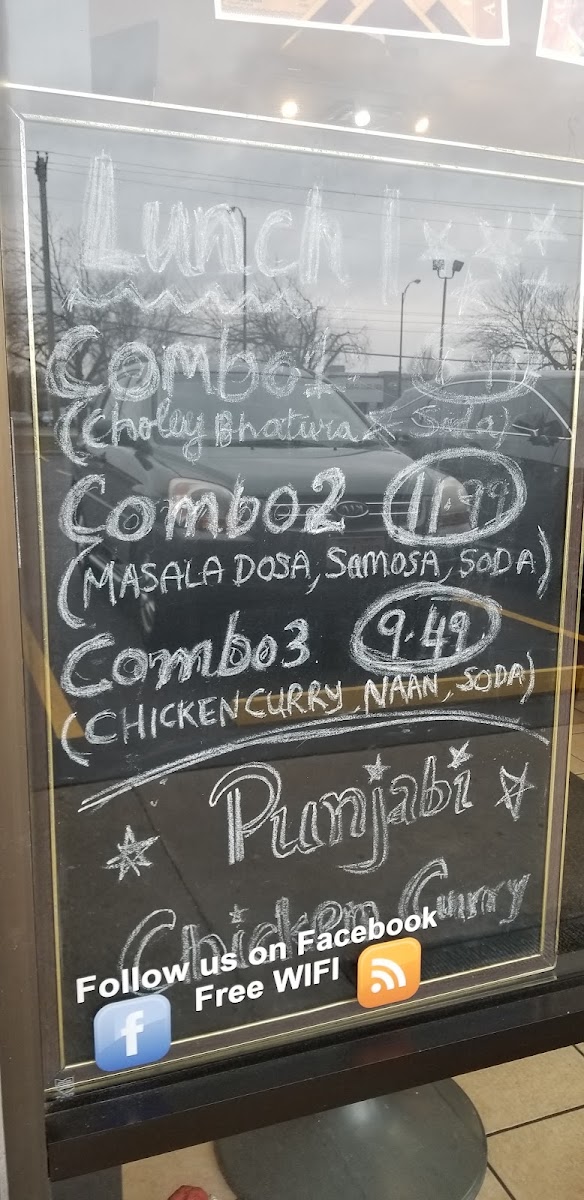 Lunch !
Combo 1
(Choley Bhatura Soda)
Combo 2 11.99
(MASALA DOSA, SAMOSA, SODA)
Combo 3 9.49
(CHICKEN CURRY, NAAN, SODA)
Punjabi
Chicken Curry
Follow us on Facebook
Free WIFI
f